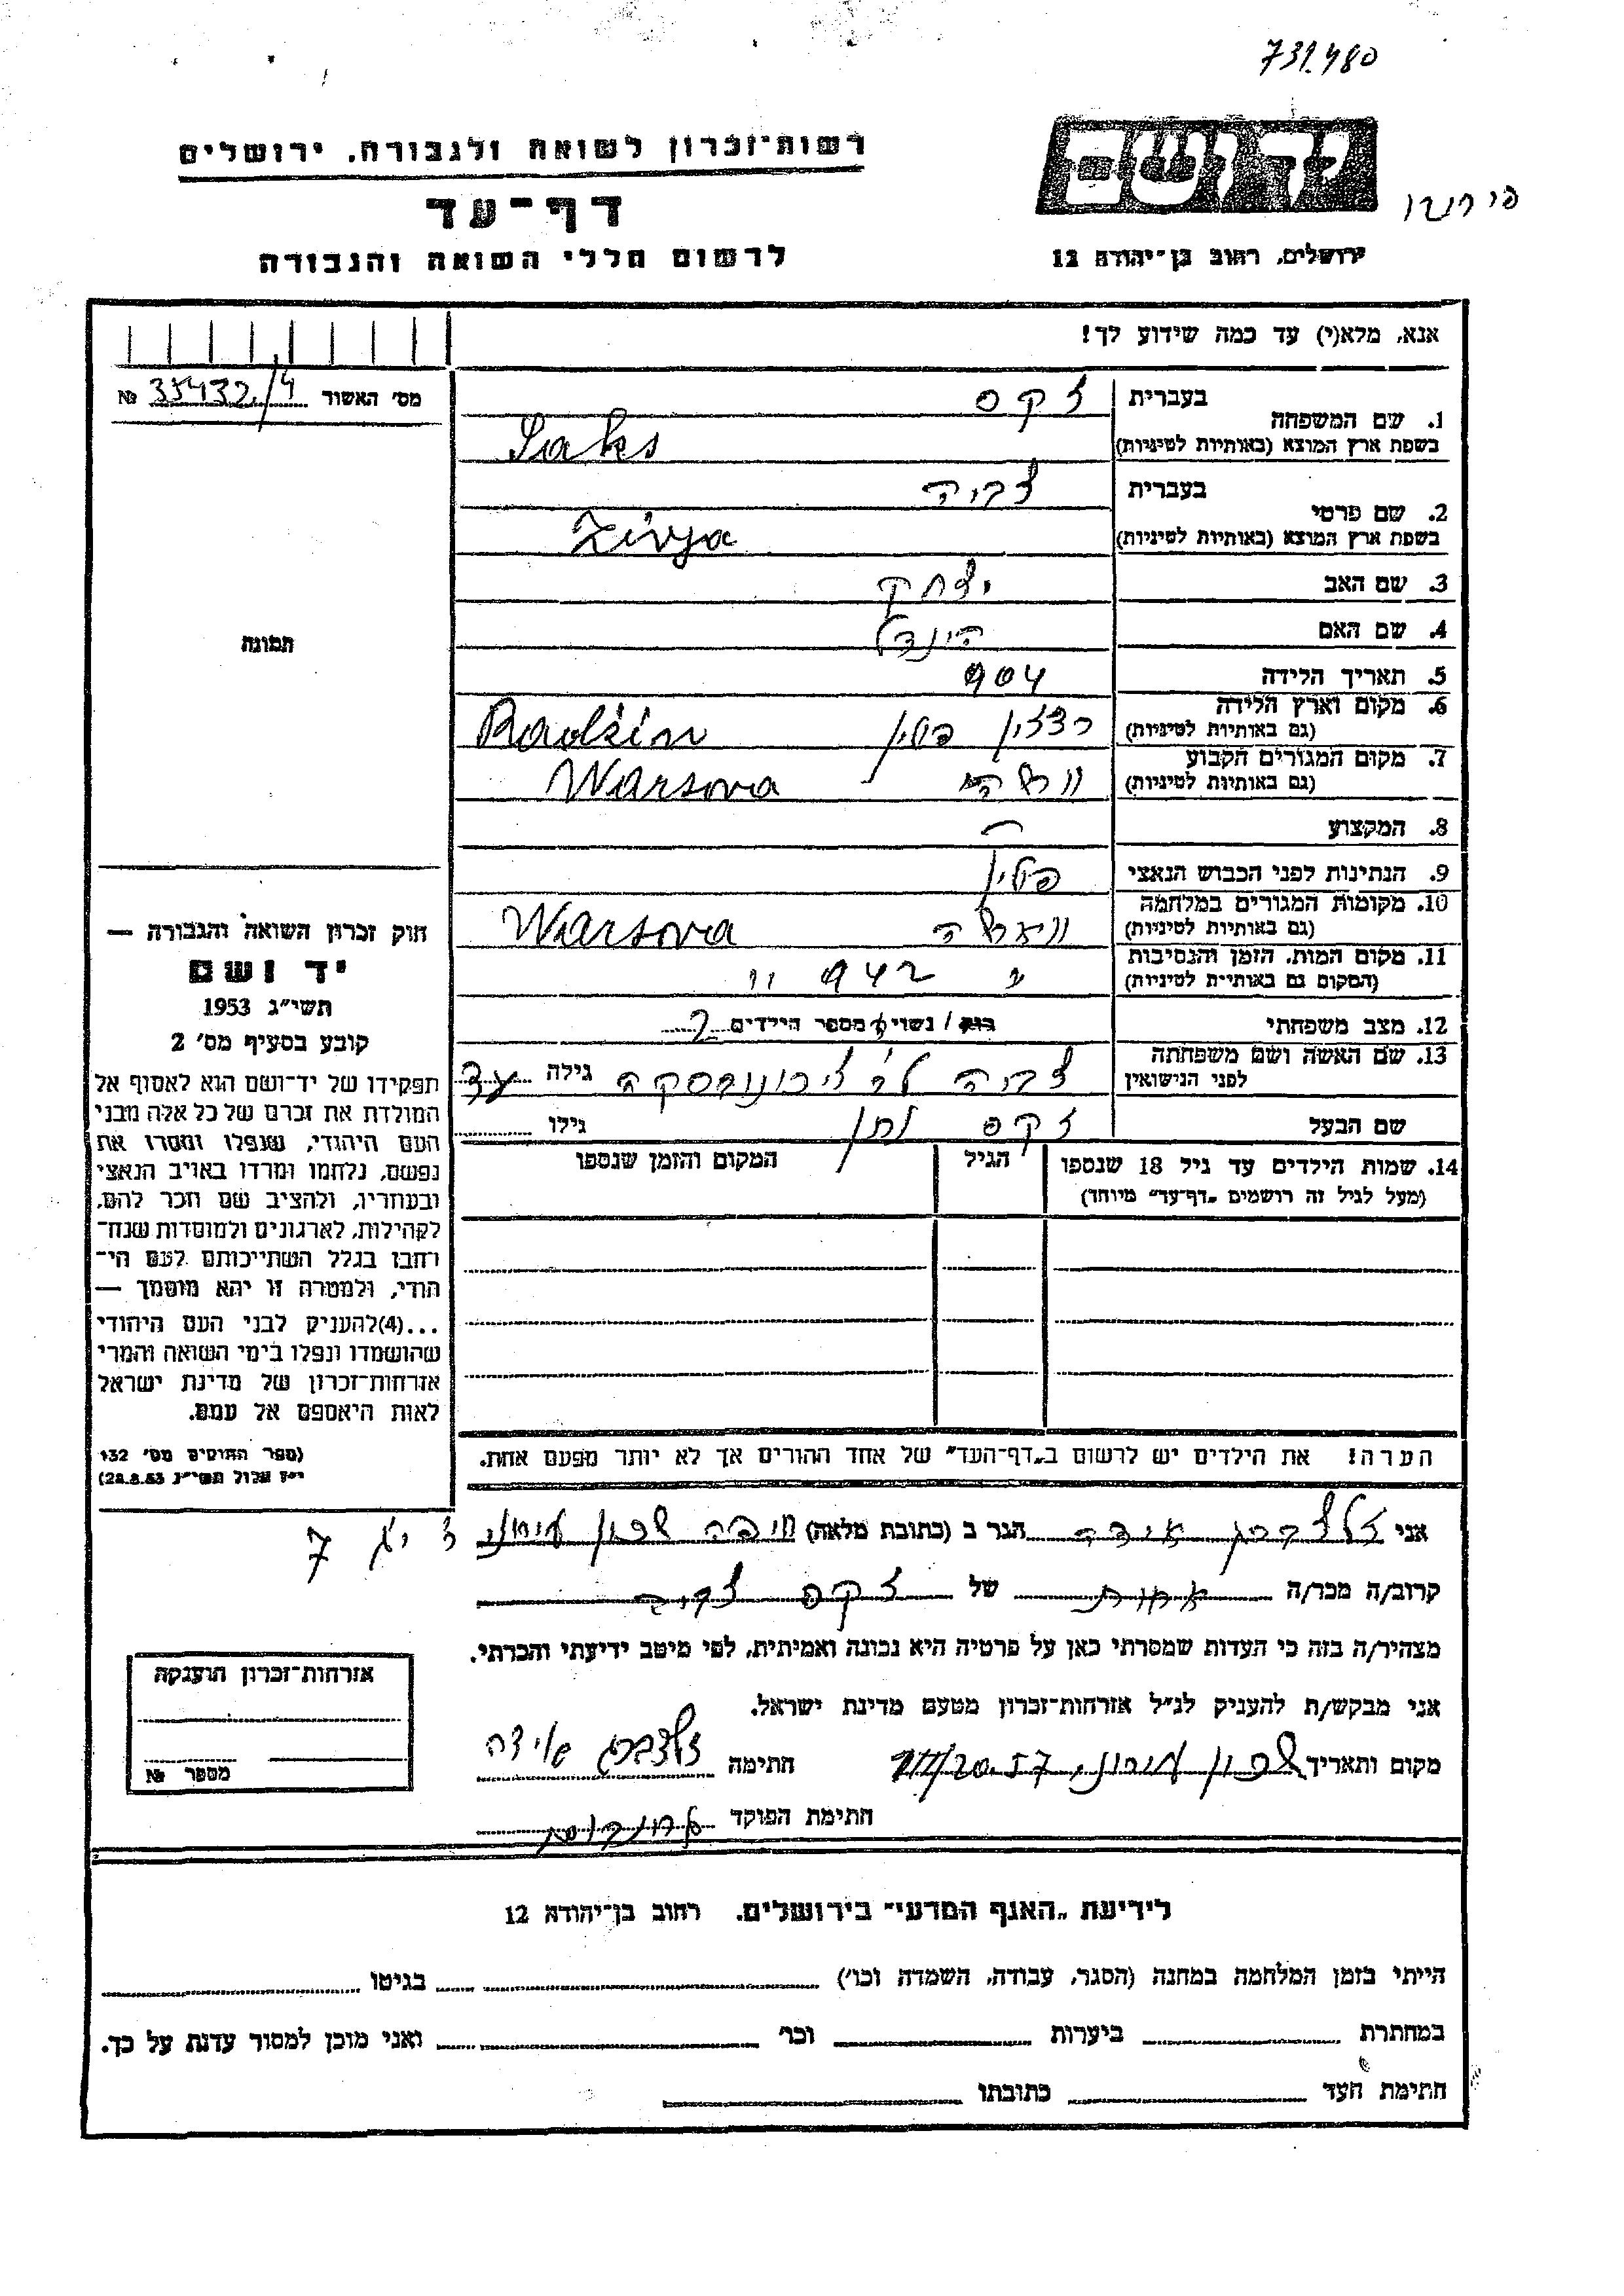 731.480
רשות־זכרון לשואה ולגבורה, ירושלים
יד ושם
דף־עד
לרשום חללי השואה והגבורה
ירושלים, רחוב בן־יהודה 12
אנא, מלא(י) עד כמה שידוע לך!
מס' האשור 35432/4 №
1. שם המשפחה
בעברית זקס
בשפת ארץ המוצא (באותיות לטיניות) Saks
2. שם פרטי
בעברית צביה
בשפת ארץ המוצא (באותיות לטיניות) Zivja
3. שם האב יצחק
4. שם האם הינדל
5. תאריך הלידה 904
6. מקום וארץ הלידה
(גם באותיות לטיניות) רדזין פולין Radzin
7. מקום המגורים הקבוע
(גם באותיות לטיניות) ורשה Warsova
8. המקצוע
9. הנתינות לפני הכבוש הנאצי פולין
10. מקומות המגורים במלחמה
(גם באותיות לטיניות) וורשה Warsova
11. מקום המות, הזמן והנסיבות
(המקום גם באותיות לטיניות) " 942 "
12. מצב משפחתי רווק / נשוי מספר הילדים 2
13. שם האשה ושם משפחתה
לפני הנישואין צביה גילה
שם הבעל זקס נתן גילו
14. שמות הילדים עד גיל 18 שנספו הגיל המקום והזמן שנספו
(מעל לגיל זה רושמים „דף־עד" מיוחד)
הערה! את הילדים יש לרשום ב„דף־העד" של אחד ההורים אך לא יותר מפעם אחת.
תמונה
חוק זכרון השואה והגבורה —
יד ושם
תשי"ג 1953
קובע בסעיף מס' 2
תפקידו של יד־ושם הוא לאסוף אל
המולדת את זכרם של כל אלה מבני
העם היהודי, שנפלו ומסרו את
נפשם, נלחמו ומרדו באויב הנאצי
ובעוזריו, ולהציב שם וזכר להם,
לקהילות, לארגונים ולמוסדות שנח־
רבו בגלל השתייכותם לעם הי־
הודי, ולמטרה זו יהא מוסמך —
...(4)להעניק לבני העם היהודי
שהושמדו ונפלו בימי השואה והמרי
אזרחות־זכרון של מדינת ישראל
לאות היאספם אל עמם.
(ספר החוקים מס' 132
י"ז אלול תשי"ג 28.8.53)
אני זלצברג אידה הגר ב (כתובת מלאה) חיפה שכון
קרוב/ה מכר/ה אחות של זקס צביה
מצהיר/ה בזה כי העדות שמסרתי כאן על פרטיה היא נכונה ואמיתית, לפי מיטב ידיעתי והכרתי.
אני מבקש/ת להעניק לנ"ל אזרחות־זכרון מטעם מדינת ישראל.
מקום ותאריך שכון חתימה זלצברג אידה
חתימת הפוקד
אזרחות־זכרון הוענקה
מספר №
לידיעת „האגף המדעי" בירושלים. רחוב בן־יהודה 12
הייתי בזמן המלחמה במחנה (הסגר, עבודה, השמדה וכו') בגיטו
במחתרת ביערות וכו' ואני מוכן למסור עדות על כך.
חתימת העד כתובתו